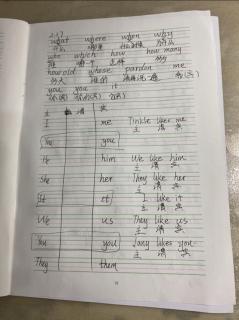 what where when why
什么 哪里 什么时候 为什么
who which how how many
谁 哪一个 怎样 多少
how old whose pardon me
多大 谁的 请再说一遍 我(宾)
you you it
主 宾
me Tinkle likes me
主 谓 宾
You you
He him We like him
主 谓 宾
She her They like her
主 谓 宾
It it I like it
主 谓 宾
We us They like us
主 谓 宾
You you Jany likes you
主 谓 宾
They them